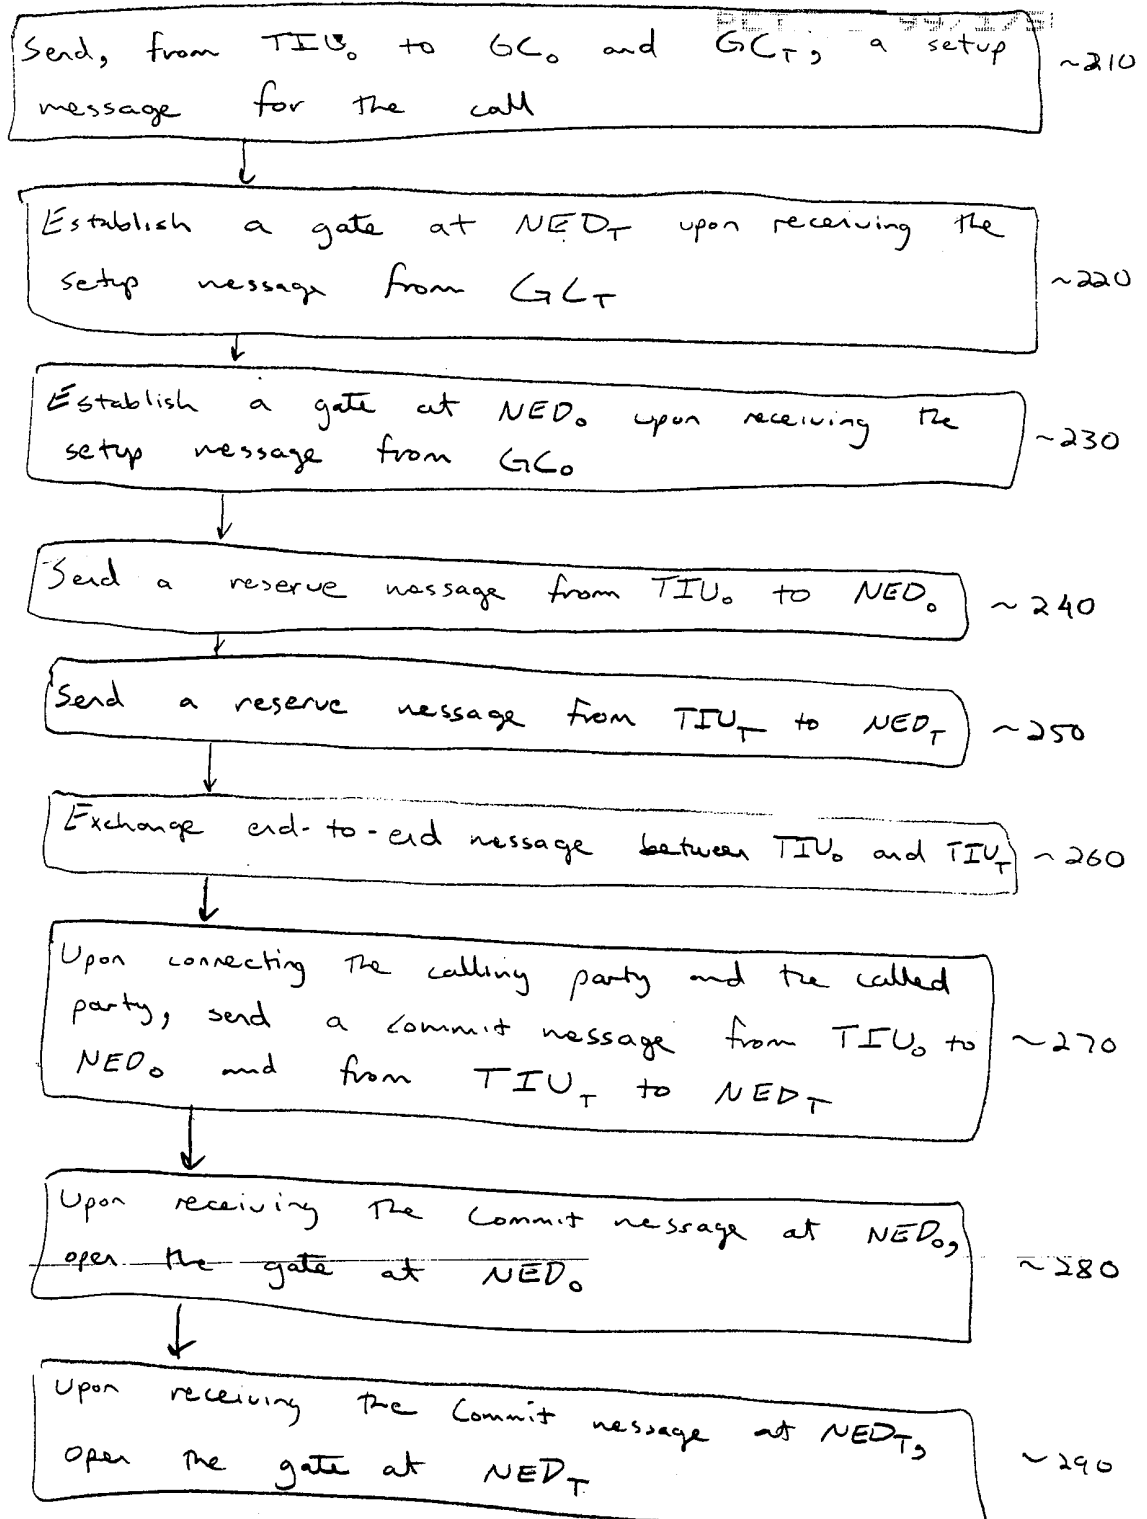 PCT 99/175
Send, from TIU₀ to GC₀ and GC_T, a setup ~210
message for the call
Establish a gate at NED_T upon receiving the
setup message from GC_T ~220
Establish a gate at NED₀ upon receiving the
setup message from GC₀ ~230
Send a reserve message from TIU₀ to NED₀ ~240
Send a reserve message from TIU_T to NED_T ~250
Exchange end-to-end message between TIU₀ and TIU_T ~260
Upon connecting the calling party and the called
party, send a commit message from TIU₀ to ~270
NED₀ and from TIU_T to NED_T
Upon receiving the commit message at NED₀,
open the gate at NED₀ ~280
Upon receiving the commit message at NED_T,
open the gate at NED_T ~290